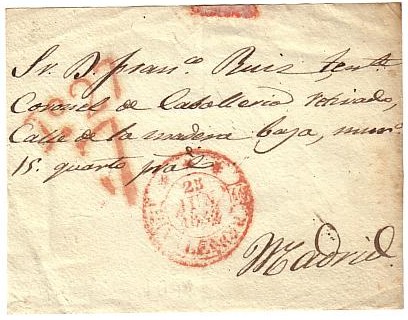 Sr. D. Franco. Ruiz tente.
Coronel de Caballeria retirado,
Calle de la madera baja, num.o
15. quarto pral.
25
JUN
Madrid.